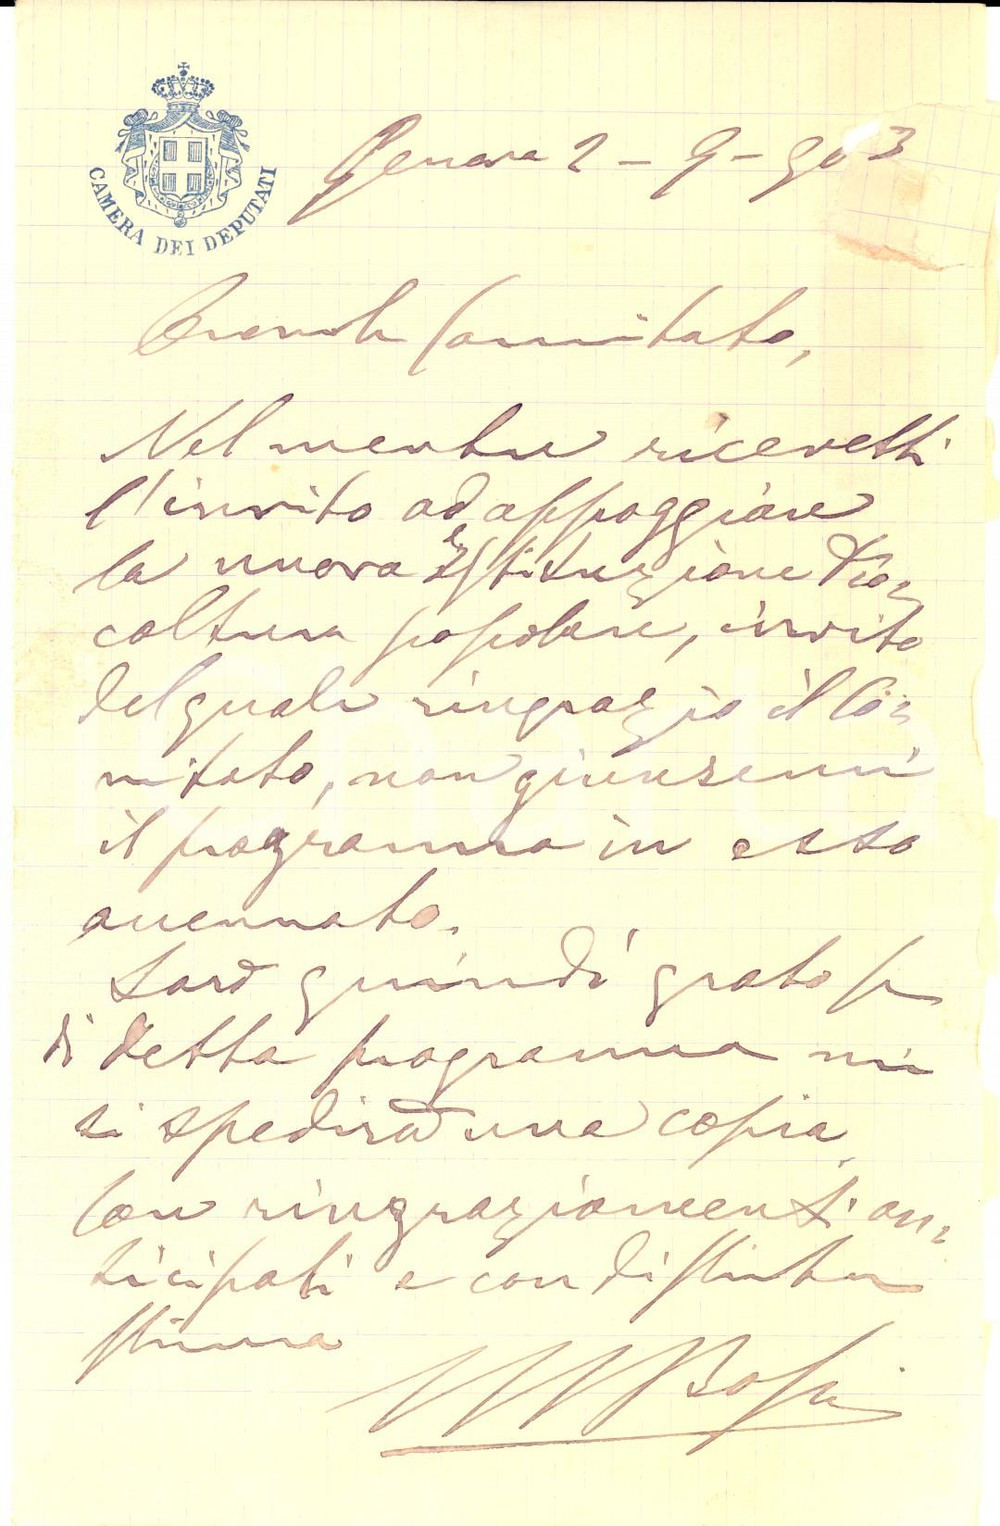 CAMERA DEI DEPUTATI
Genova 2 - 9 - 903
Onorevole Comitato,
Nel mentre ricevetti
l'invito ad appoggiare
la nuova istituzione
coltura popolare, invito
del quale ringrazio il Co-
mitato, non giunsemi
il programma in esso
accennato.
Sarò quindi grato se
di detto programma mi
si spedirà una copia.
Con ringraziamenti an-
ticipati e con distinta
stima